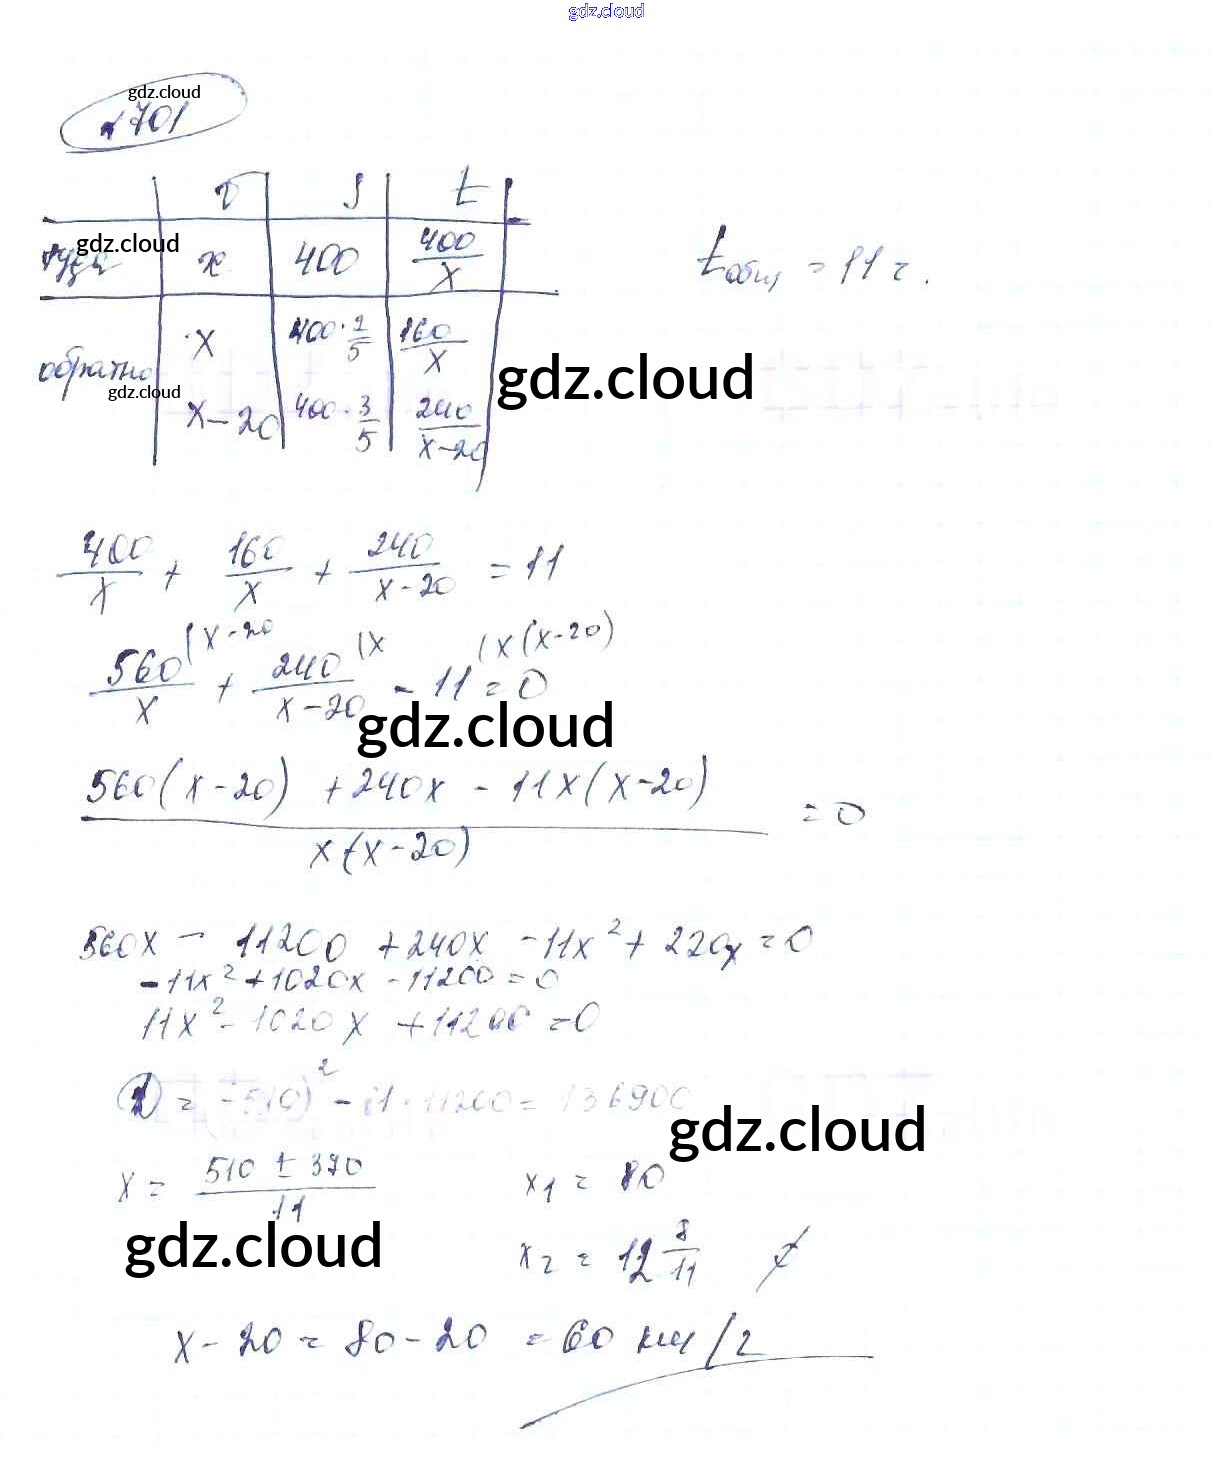 gdz.cloud
gdz.cloud
№701
v S t
туда x 400 400/x
gdz.cloud
tобщ = 11 ч.
обратно x 400·2/5 160/x
gdz.cloud
gdz.cloud
x-20 400·3/5 240/(x-20)
400/x + 160/x + 240/(x-20) = 11
560/x (x-20 + 240/(x-20) (x - 11 = 0 (x(x-20)
gdz.cloud
(560(x-20) + 240x - 11x(x-20))/(x(x-20)) = 0
560x - 11200 + 240x - 11x² + 220x = 0
-11x² + 1020x - 11200 = 0
11x² - 1020x + 11200 = 0
D = -510)² - 11·11200 = 136900
gdz.cloud
x = (510 ± 370)/11 x₁ = 80
gdz.cloud
x₂ = 12 8/11
x - 20 = 80 - 20 = 60 км/ч